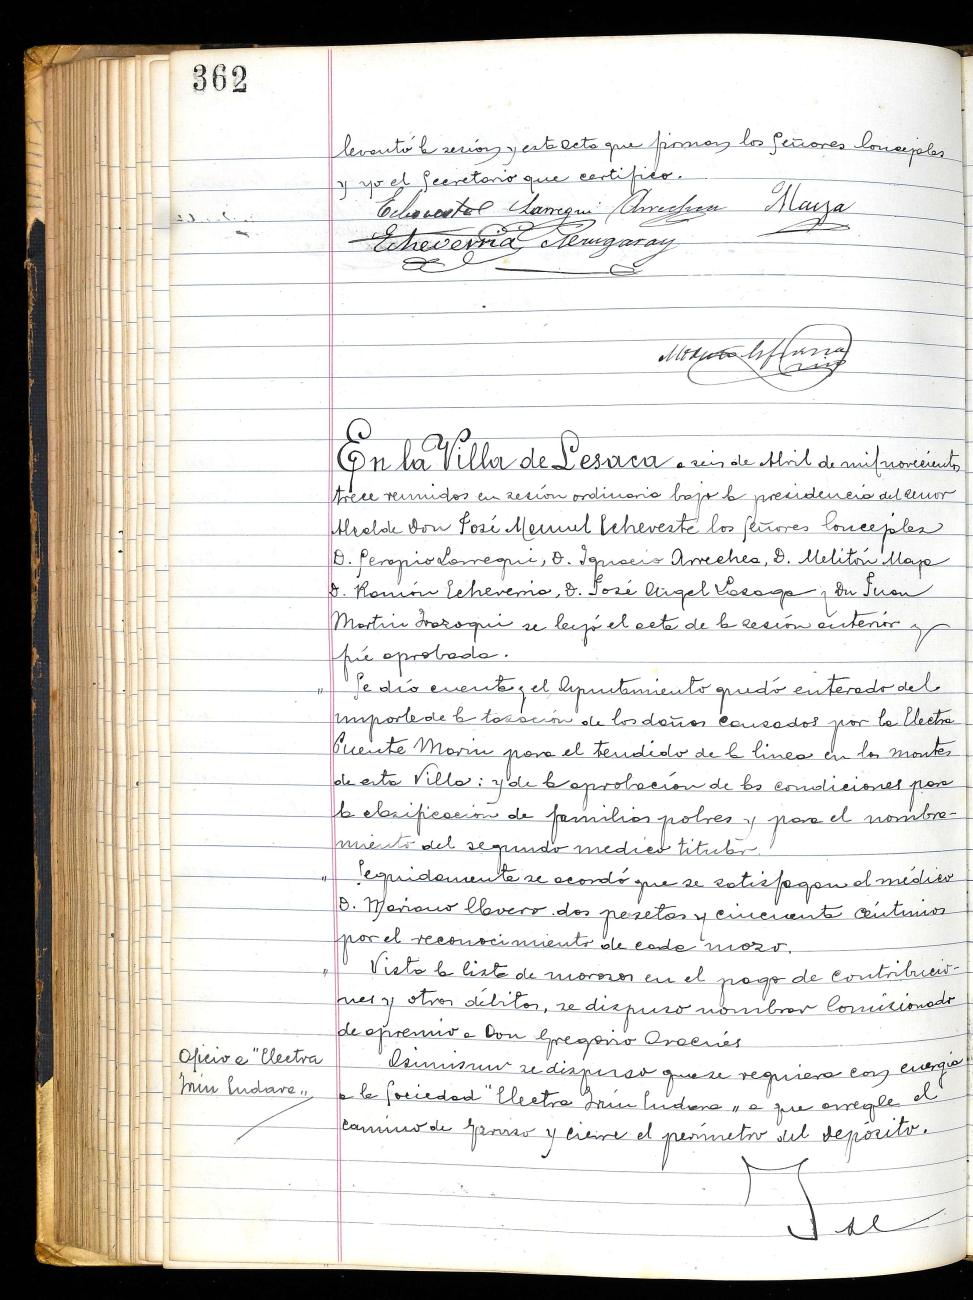 362
levantó la sesión y esta acta que firman los Señores Concejales
y yo el Secretario que certifico.
Echeveste Larregui Arrechea Maya
Echeverria
En la Villa de Lesaca a seis de Abril de mil novecientos
trece reunidos en sesión ordinaria bajo la presidencia del Señor
Alcalde Don José Manuel Echeveste los Señores Concejales
D. Serapio Larregui, D. Ignacio Arrechea, D. Melitón Maya
D. Ramón Echeverria, D. José Angel Lasaga y Don Juan
Martin Irazoqui se leyó el acta de la sesión anterior y
fué aprobada.
" Se dió cuenta y el Ayuntamiento quedó enterado del
importe de la tasación de los daños causados por la Electra
Puente Marin para el tendido de la linea en los montes
de esta Villa: y de la aprobación de las condiciones para
la clasificación de familias pobres y para el nombra-
miento del segundo medico titular.
" Seguidamente se acordó que se satisfagan al médico
D. Mariano Clavero dos pesetas y cincuenta céntimos
por el reconocimiento de cada mozo.
" Vista la lista de morosos en el pago de contribucio-
nes y otros débitos, se dispuso nombrar Comisionado
de apremio a Don Gregorio
Oficio a "Electra
Irún Endara„
Asimismo se dispuso que se requiera con energia
a la Sociedad "Electra Irún Endara„ a que arregle el
camino de y cierre el perimetro del depósito.
Se